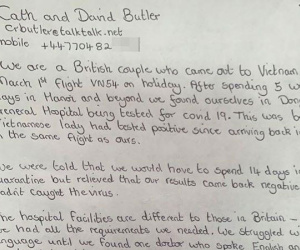 Cath and David Butler
crbutler@talktalk.net
mobile +44770482
We are a British couple who came out to Vietnam
March 1st flight VN54 on holiday. After spending 5 w
days in Hanoi and beyond we found ourselves in Don
General Hospital being tested for covid 19. This was b
Vietnamese lady had tested positive since arriving back i
n the same flight as ours.
We were told that we would have to spend 14 days i
quarantine but relieved that our results came back negative
hadn't caught the virus.
The hospital facilities are different to those in Britain -
we had all the requirements we needed. We struggled w
language until we found one doctor who spoke English a